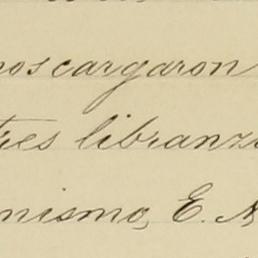 noscargaron
tres libranz
mismo, E. N